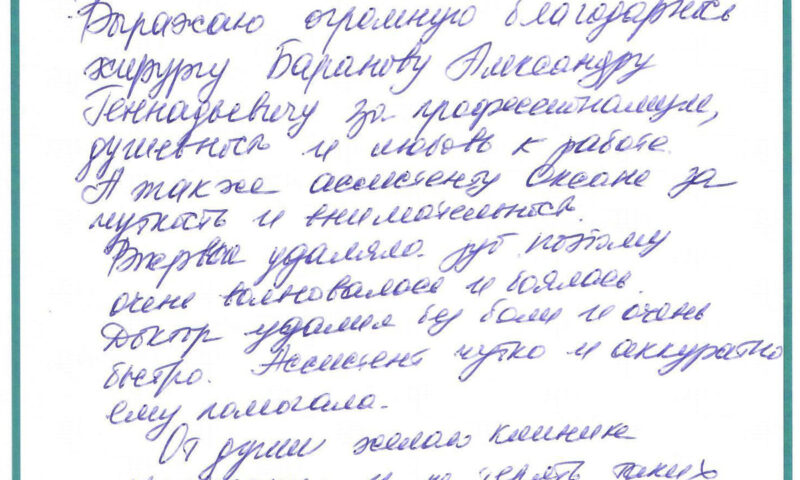 Выражаю огромную благодарность
хирургу Баранову Александру
Геннадьевичу за профессионализм,
душевность и любовь к работе.
А также ассистенту Оксане за
чуткость и внимательность.
Впервые удаляла зуб поэтому
очень волновалась и боялась.
Доктор удалил без боли и очень
быстро. Ассистент чутко и аккуратно
ему помогала.
От души желаю клинике
и не терять таких